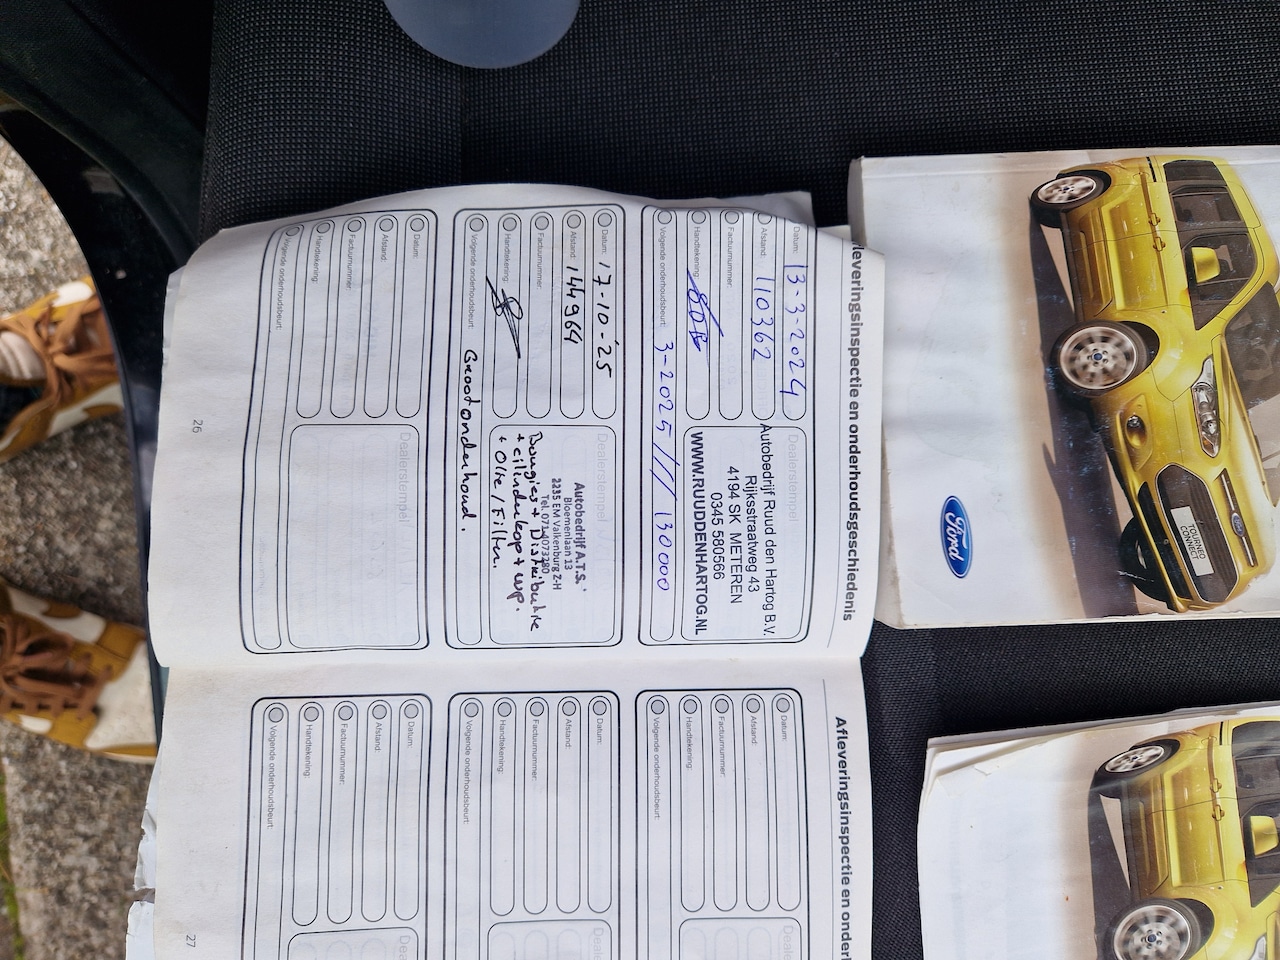 Afleveringsinspectie en onderhoudsgeschiedenis
Datum: 13-3-2024
Afstand: 110362
Factuurnummer:
Handtekening:
Volgende onderhoudsbeurt: 3-2025 /// 130000
Dealerstempel
Autobedrijf Ruud den Hartog B.V.
Rijksstraatweg 43
4194 SK METEREN
0345 580566
WWW.RUUDDENHARTOG.NL
Datum: 17-10-'25
Afstand: 144964
Factuurnummer:
Handtekening:
Volgende onderhoudsbeurt: Grootonderhoud.
Dealerstempel
Autobedrijf A.T.S.
Bloemenlaan 13
2235 EM Valkenburg Z-H
Tel. 071-4073280
Bougies + Distributie
+ cilinderkop + wp.
+ Olie / Filter.
Datum:
Afstand:
Factuurnummer:
Handtekening:
Volgende onderhoudsbeurt:
Dealerstempel
26
Afleveringsinspectie en onderh
Datum:
Afstand:
Factuurnummer:
Handtekening:
Volgende onderhoudsbeurt:
Deale
Datum:
Afstand:
Factuurnummer:
Handtekening:
Volgende onderhoudsbeurt:
Deale
Datum:
Afstand:
Factuurnummer:
Handtekening:
Volgende onderhoudsbeurt:
Deale
27
Ford
TOURNEO
CONNECT